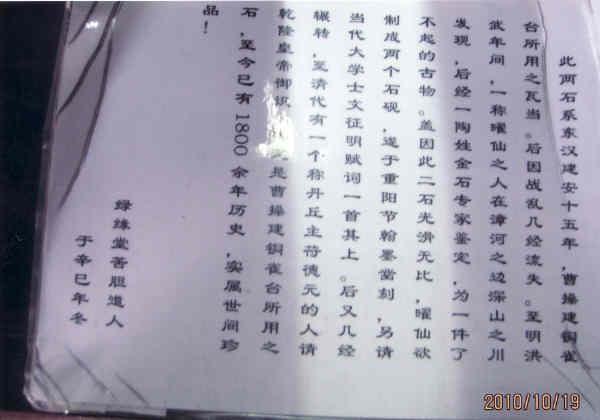 此两石系东汉建安十五年，曹操建铜雀
台所用之瓦当。后因战乱几经流失。至明洪
武年间，一称曜仙之人在漳河之边深山之川
发现，后经一陶姓金石专家鉴定，为一件了
不起的古物。盖因此二石光滑无比，曜仙欲
制成两个石砚，遂于重阳节翰墨刻，另请
当代大学士文征明赋词一首其上。后又几经
辗转，至清代有一个称丹丘主符德元的人请
乾隆皇帝御是曹操建铜雀台所用之
石，至今已有1800余年历史，实属世间珍
品！
绿堂苦胆道人
于辛巳年冬
2010/10/19